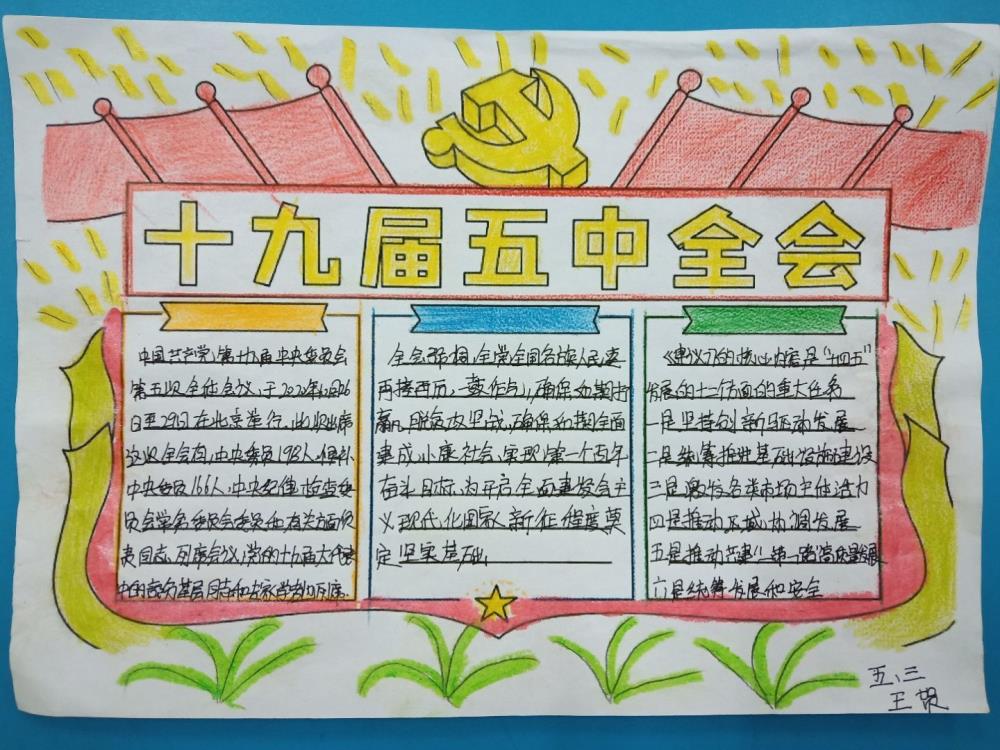 十九届五中全会
中国共产党第十九届中央委员会
第五次全体会议,于2020年10月26
日至29日在北京举行。此次出席
这次全会的,中央委员198人,候补
中央委员166人,中央纪律检查委
员会常务委员会委员和有关方面负
责同志,列席会议,党的十九大代表
中的部分基层同志和专家学者列席
全会强调,全党全国各族人民要
再接再厉、一鼓作气,确保如期打
赢脱贫攻坚战,确保如期全面
建成小康社会、实现第一个百年
奋斗目标,为开启全面建设会主
义现代化国家新征程度奠
定坚实基础
《建议》的核心内容是"十四五"
发展的十二个方面的重大任务
一是坚持创新驱动发展
二是统筹推进基础设施建设
三是激发各类市场主体活力
四是推动区域协调发展
五是推动共建"一带一路"高质量发展
六是统筹发展和安全
五、三
王